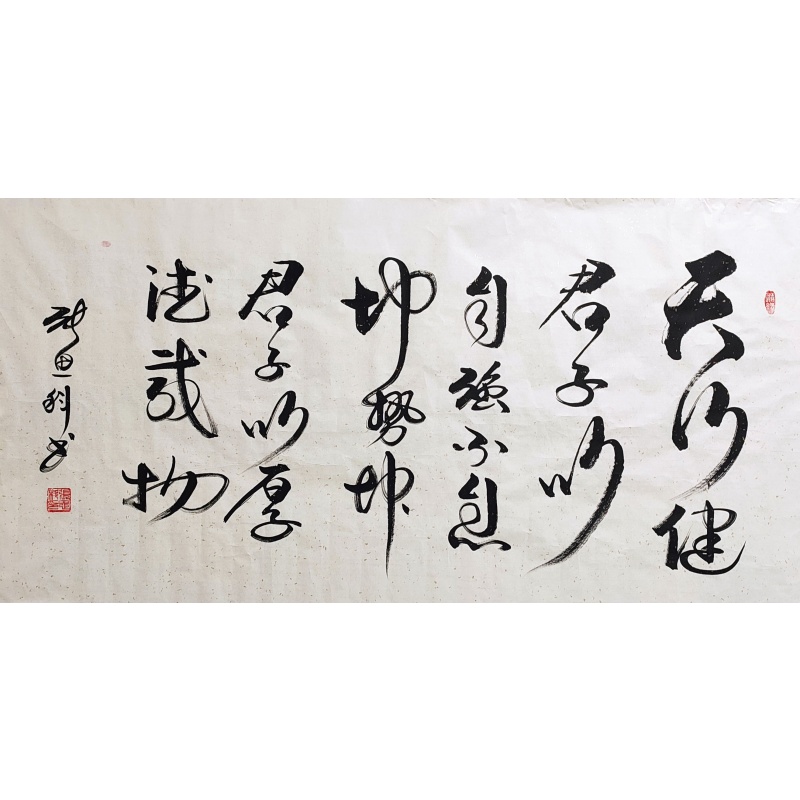 天行健
君子以
自強不息
地勢坤
君子以厚
德載物